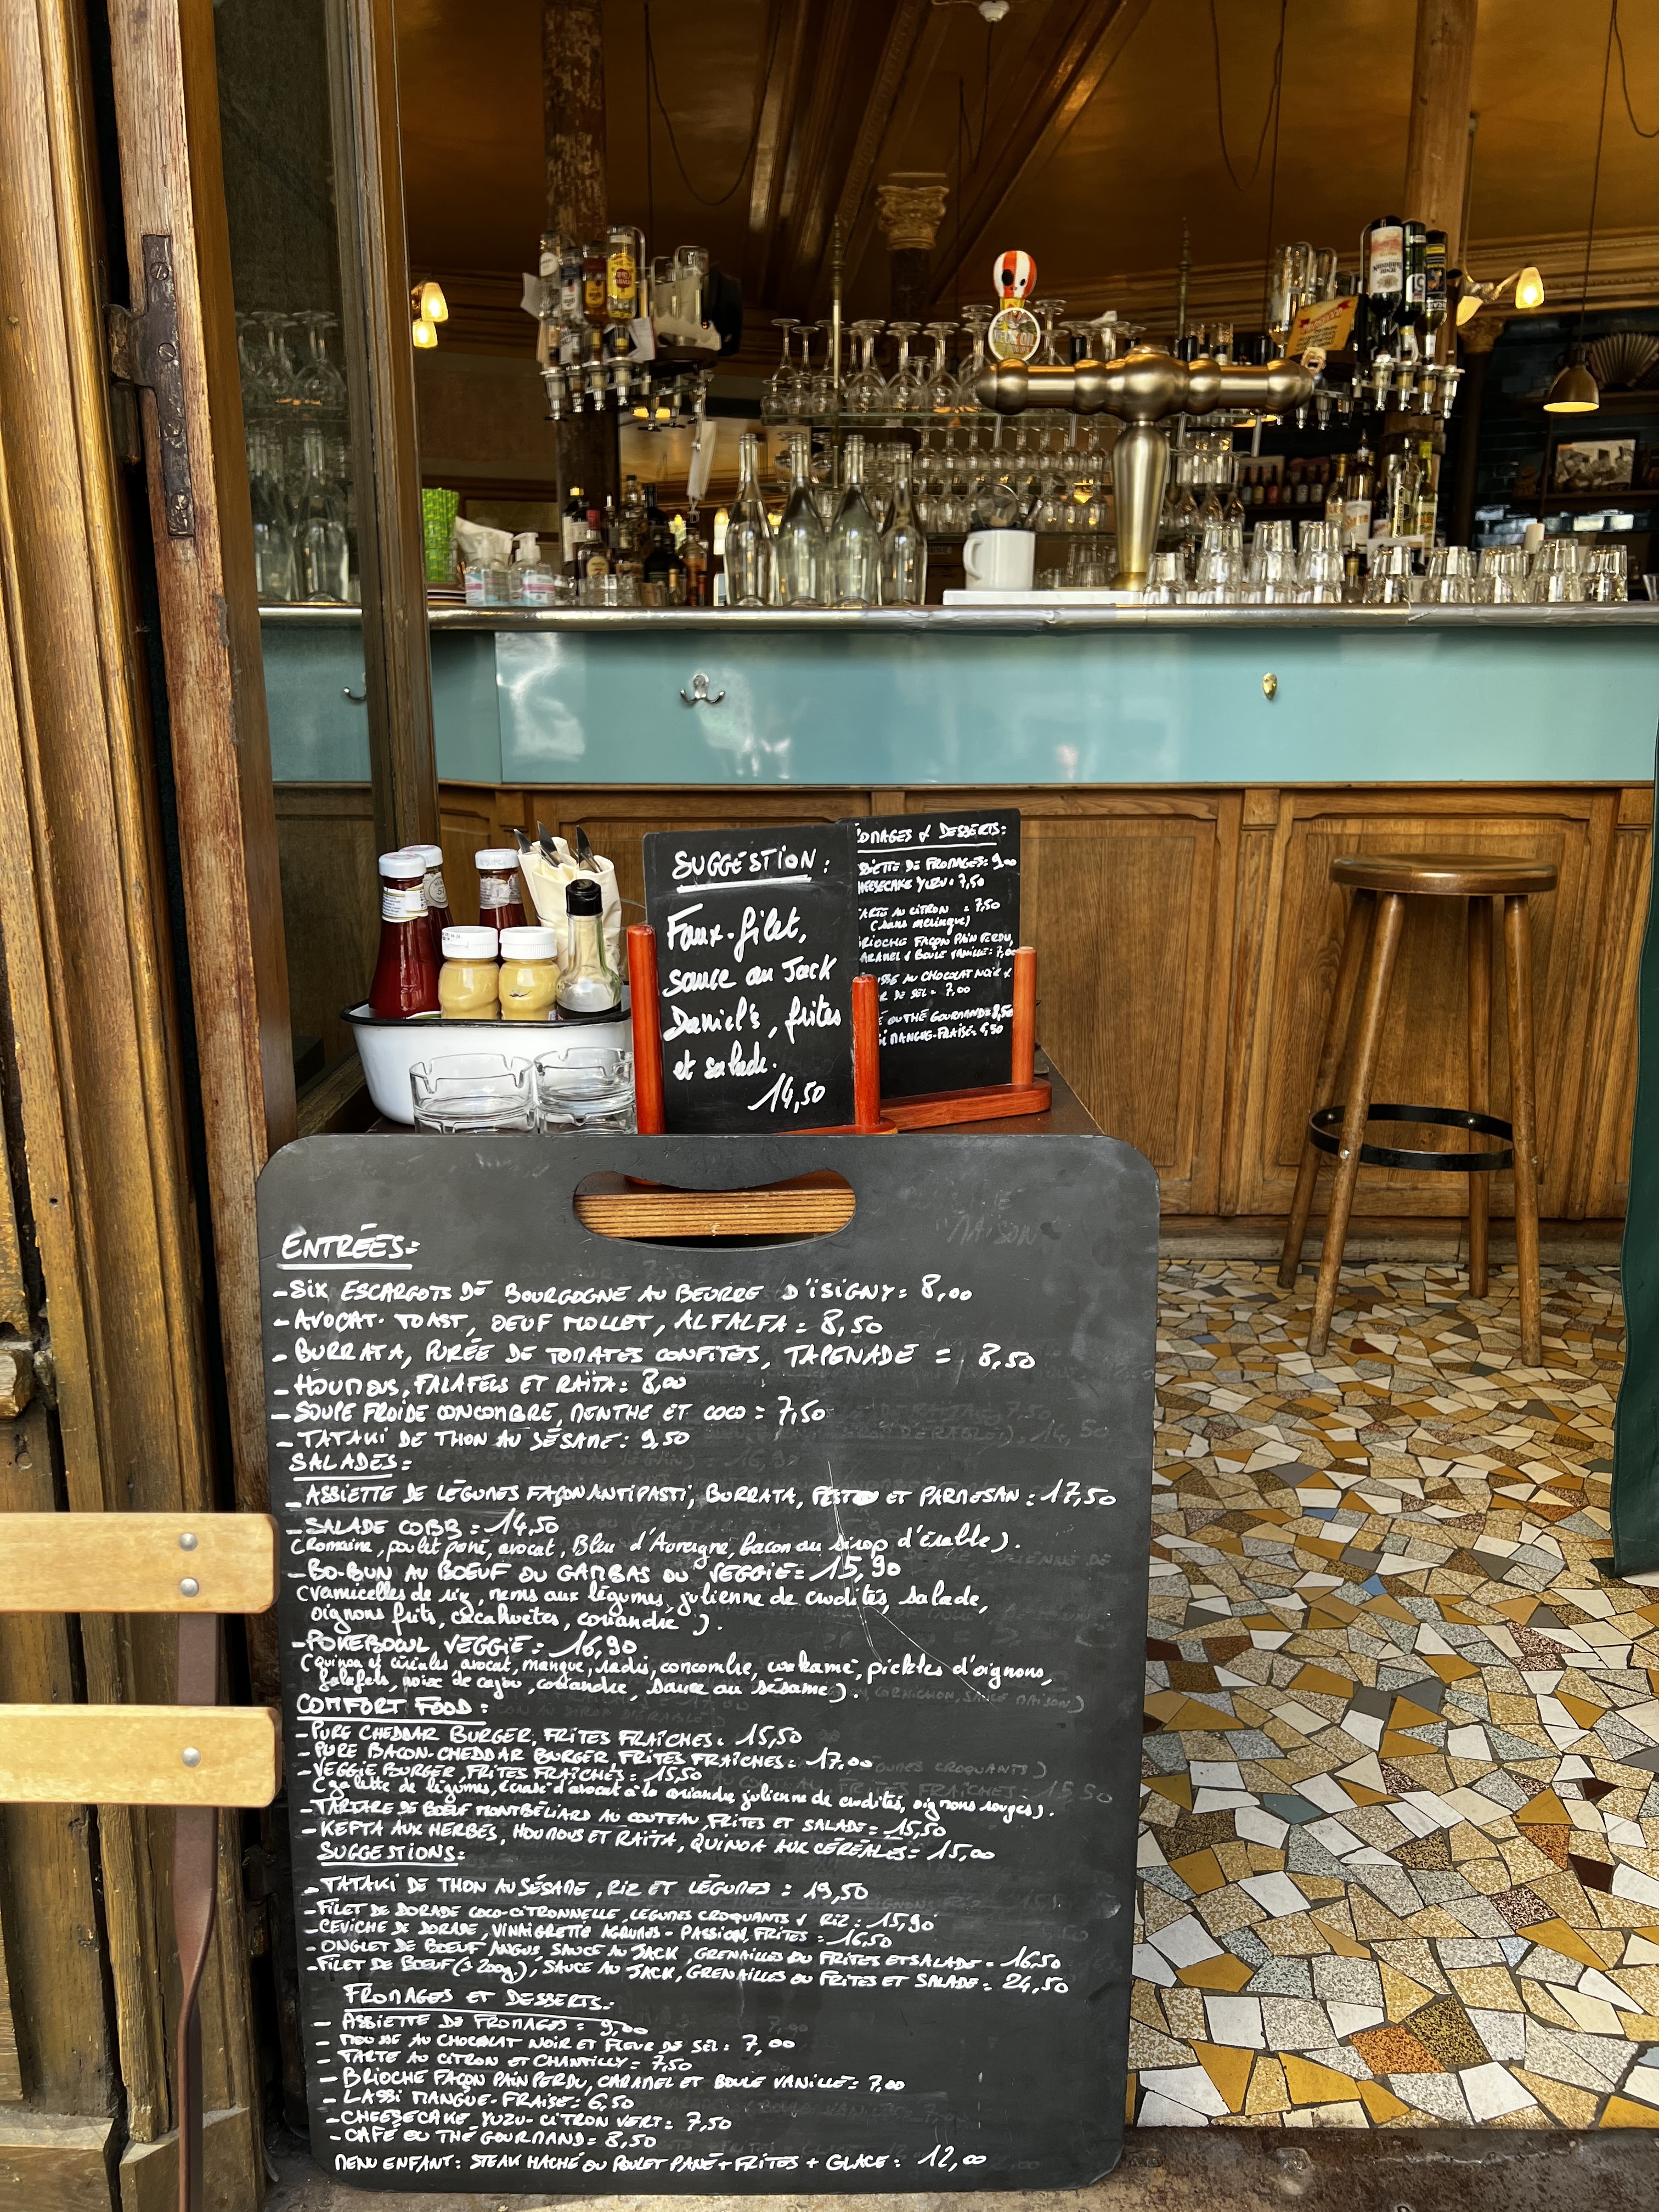 SUGGESTION :
Faux-filet,
sauce au Jack
Daniel's, frites
et salade.
14,50
& DESSERTS:
DE FROMAGES: 9,00
YUZU: 7,50
AU CITRON = 7,50
(sans meringue)
FAÇON PAIN PERDU,
& BOULE VANILLE: 7,00
AU CHOCOLAT NOIR &
DE SEL = 7,00
OU THÉ GOURMAND= 8,50
MANGUE-FRAISE= 6,50
MAISON
ENTRÉES=
-SIX ESCARGOTS DE BOURGOGNE AU BEURRE D'ISIGNY= 8,00
-AVOCAT-TOAST, OEUF MOLLET, ALFALFA = 8,50
-BURRATA, PURÉE DE TOMATES CONFITES, TAPENADE = 8,50
-HOUMOUS, FALAFELS ET RAÏTA= 8,00
-SOUPE FROIDE CONCOMBRE, MENTHE ET COCO = 7,50
-TATAKI DE THON AU SÉSAME: 9,50
SALADES=
-ASSIETTE DE LÉGUMES FAÇON ANTIPASTI, BURRATA, PESTO ET PARMESAN = 17,50
-SALADE COBB = 14,50
(Romaine, poulet pané, avocat, Bleu d'Auvergne, bacon au sirop d'érable).
-BO-BUN AU BOEUF OU GAMBAS OU VEGGIE= 15,90
(vermicelles de riz, nems aux légumes, julienne de crudités, salade,
oignons frits, cacahuetes, coriandre).
-POKEBOWL VEGGIE = 16,90
(Quinoa et céréales avocat, mangue, radis, concombre, wakamé, pickles d'oignons,
falafels, noix de cajou, coriandre, sauce au sésame).
COMFORT FOOD :
-PURE CHEDDAR BURGER, FRITES FRAÎCHES= 15,50
-PURE BACON-CHEDDAR BURGER, FRITES FRAÎCHES= 17,00
-VEGGIE BURGER, FRITES FRAÎCHES = 15,50
(galette de légumes, écrasé d'avocat à la coriandre, julienne de crudités, oignons rouges).
-TARTARE DE BOEUF MONTBÉLIARD AU COUTEAU, FRITES ET SALADE= 15,50
-KEFTA AUX HERBES, HOUMOUS ET RAÏTA, QUINOA AUX CÉRÉALES= 15,00
SUGGESTIONS:
-TATAKI DE THON AU SÉSAME, RIZ ET LÉGUMES = 19,50
-FILET DE DORADE COCO-CITRONNELLE, LEGUMES CROQUANTS & RIZ = 15,90
-CEVICHE DE DORADE, VINAIGRETTE AGRUMES-PASSION, FRITES = 16,50
-ONGLET DE BOEUF ANGUS, SAUCE AU JACK, GRENAILLES OU FRITES ET SALADE= 16,50
-FILET DE BOEUF (± 200g.), SAUCE AU JACK, GRENAILLES OU FRITES ET SALADE = 24,50
FROMAGES ET DESSERTS:
- ASSIETTE DE FROMAGES = 9,00
- MOUSSE AU CHOCOLAT NOIR ET FLEUR DE SEL= 7,00
- TARTE AU CITRON ET CHANTILLY= 7,50
- BRIOCHE FAÇON PAIN PERDU, CARAMEL ET BOULE VANILLE= 7,00
- LASSI MANGUE-FRAISE= 6,50
-CHEESECAKE YUZU-CITRON VERT= 7,50
-CAFÉ OU THÉ GOURMAND= 8,50
MENU ENFANT: STEAK HACHÉ OU POULET PANÉ + FRITES + GLACE = 12,00